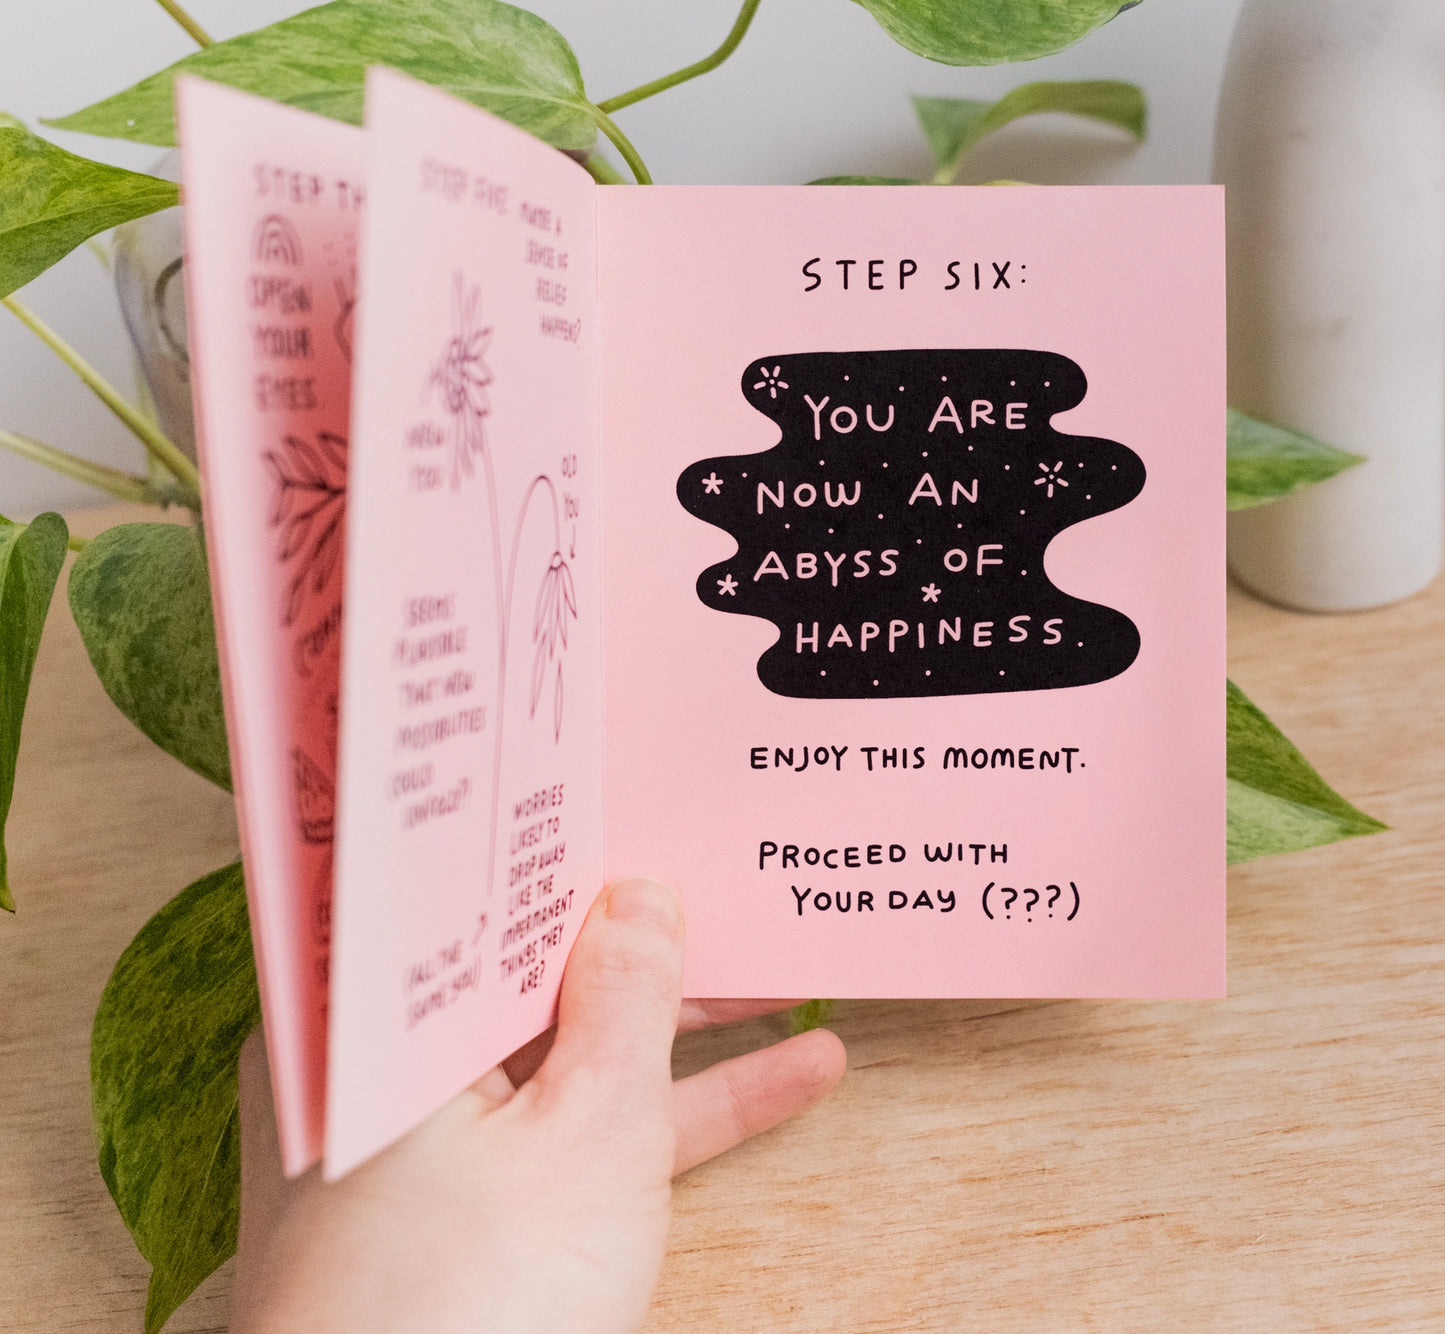 STEP TH
OPEN
YOUR
EYES
STEP FIVE: MAYBE A
SENSE OF
RELIEF
HAPPENS?
NEW
YOU
OLD
YOU
SEEMS
PLAUSIBLE
THAT NEW
POSSIBILITIES
COULD
UNFOLD?!
WORRIES
LIKELY TO
DROP AWAY
LIKE THE
IMPERMANENT
THINGS THEY
ARE?
(ALL THE
SAME YOU)
STEP SIX:
YOU ARE
NOW AN
ABYSS OF
HAPPINESS.
ENJOY THIS MOMENT.
PROCEED WITH
YOUR DAY (???)